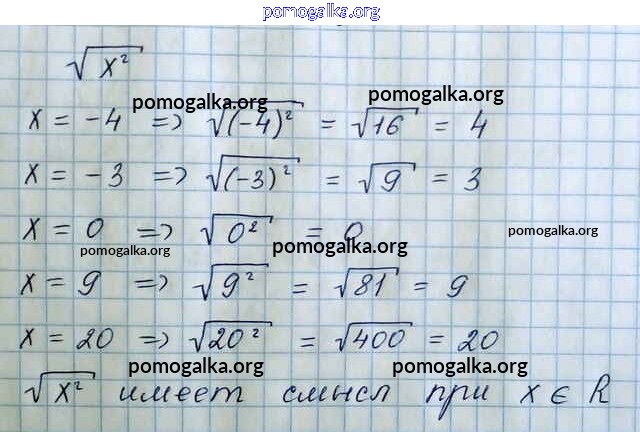 pomogalka.org
√x²
pomogalka.org pomogalka.org
x = -4 => √(-4)² = √16 = 4
x = -3 => √(-3)² = √9 = 3
x = 0 => √0² = 0
pomogalka.org
pomogalka.org pomogalka.org
x = 9 => √9² = √81 = 9
x = 20 => √20² = √400 = 20
pomogalka.org pomogalka.org
√x² имеет смысл при x ∈ R